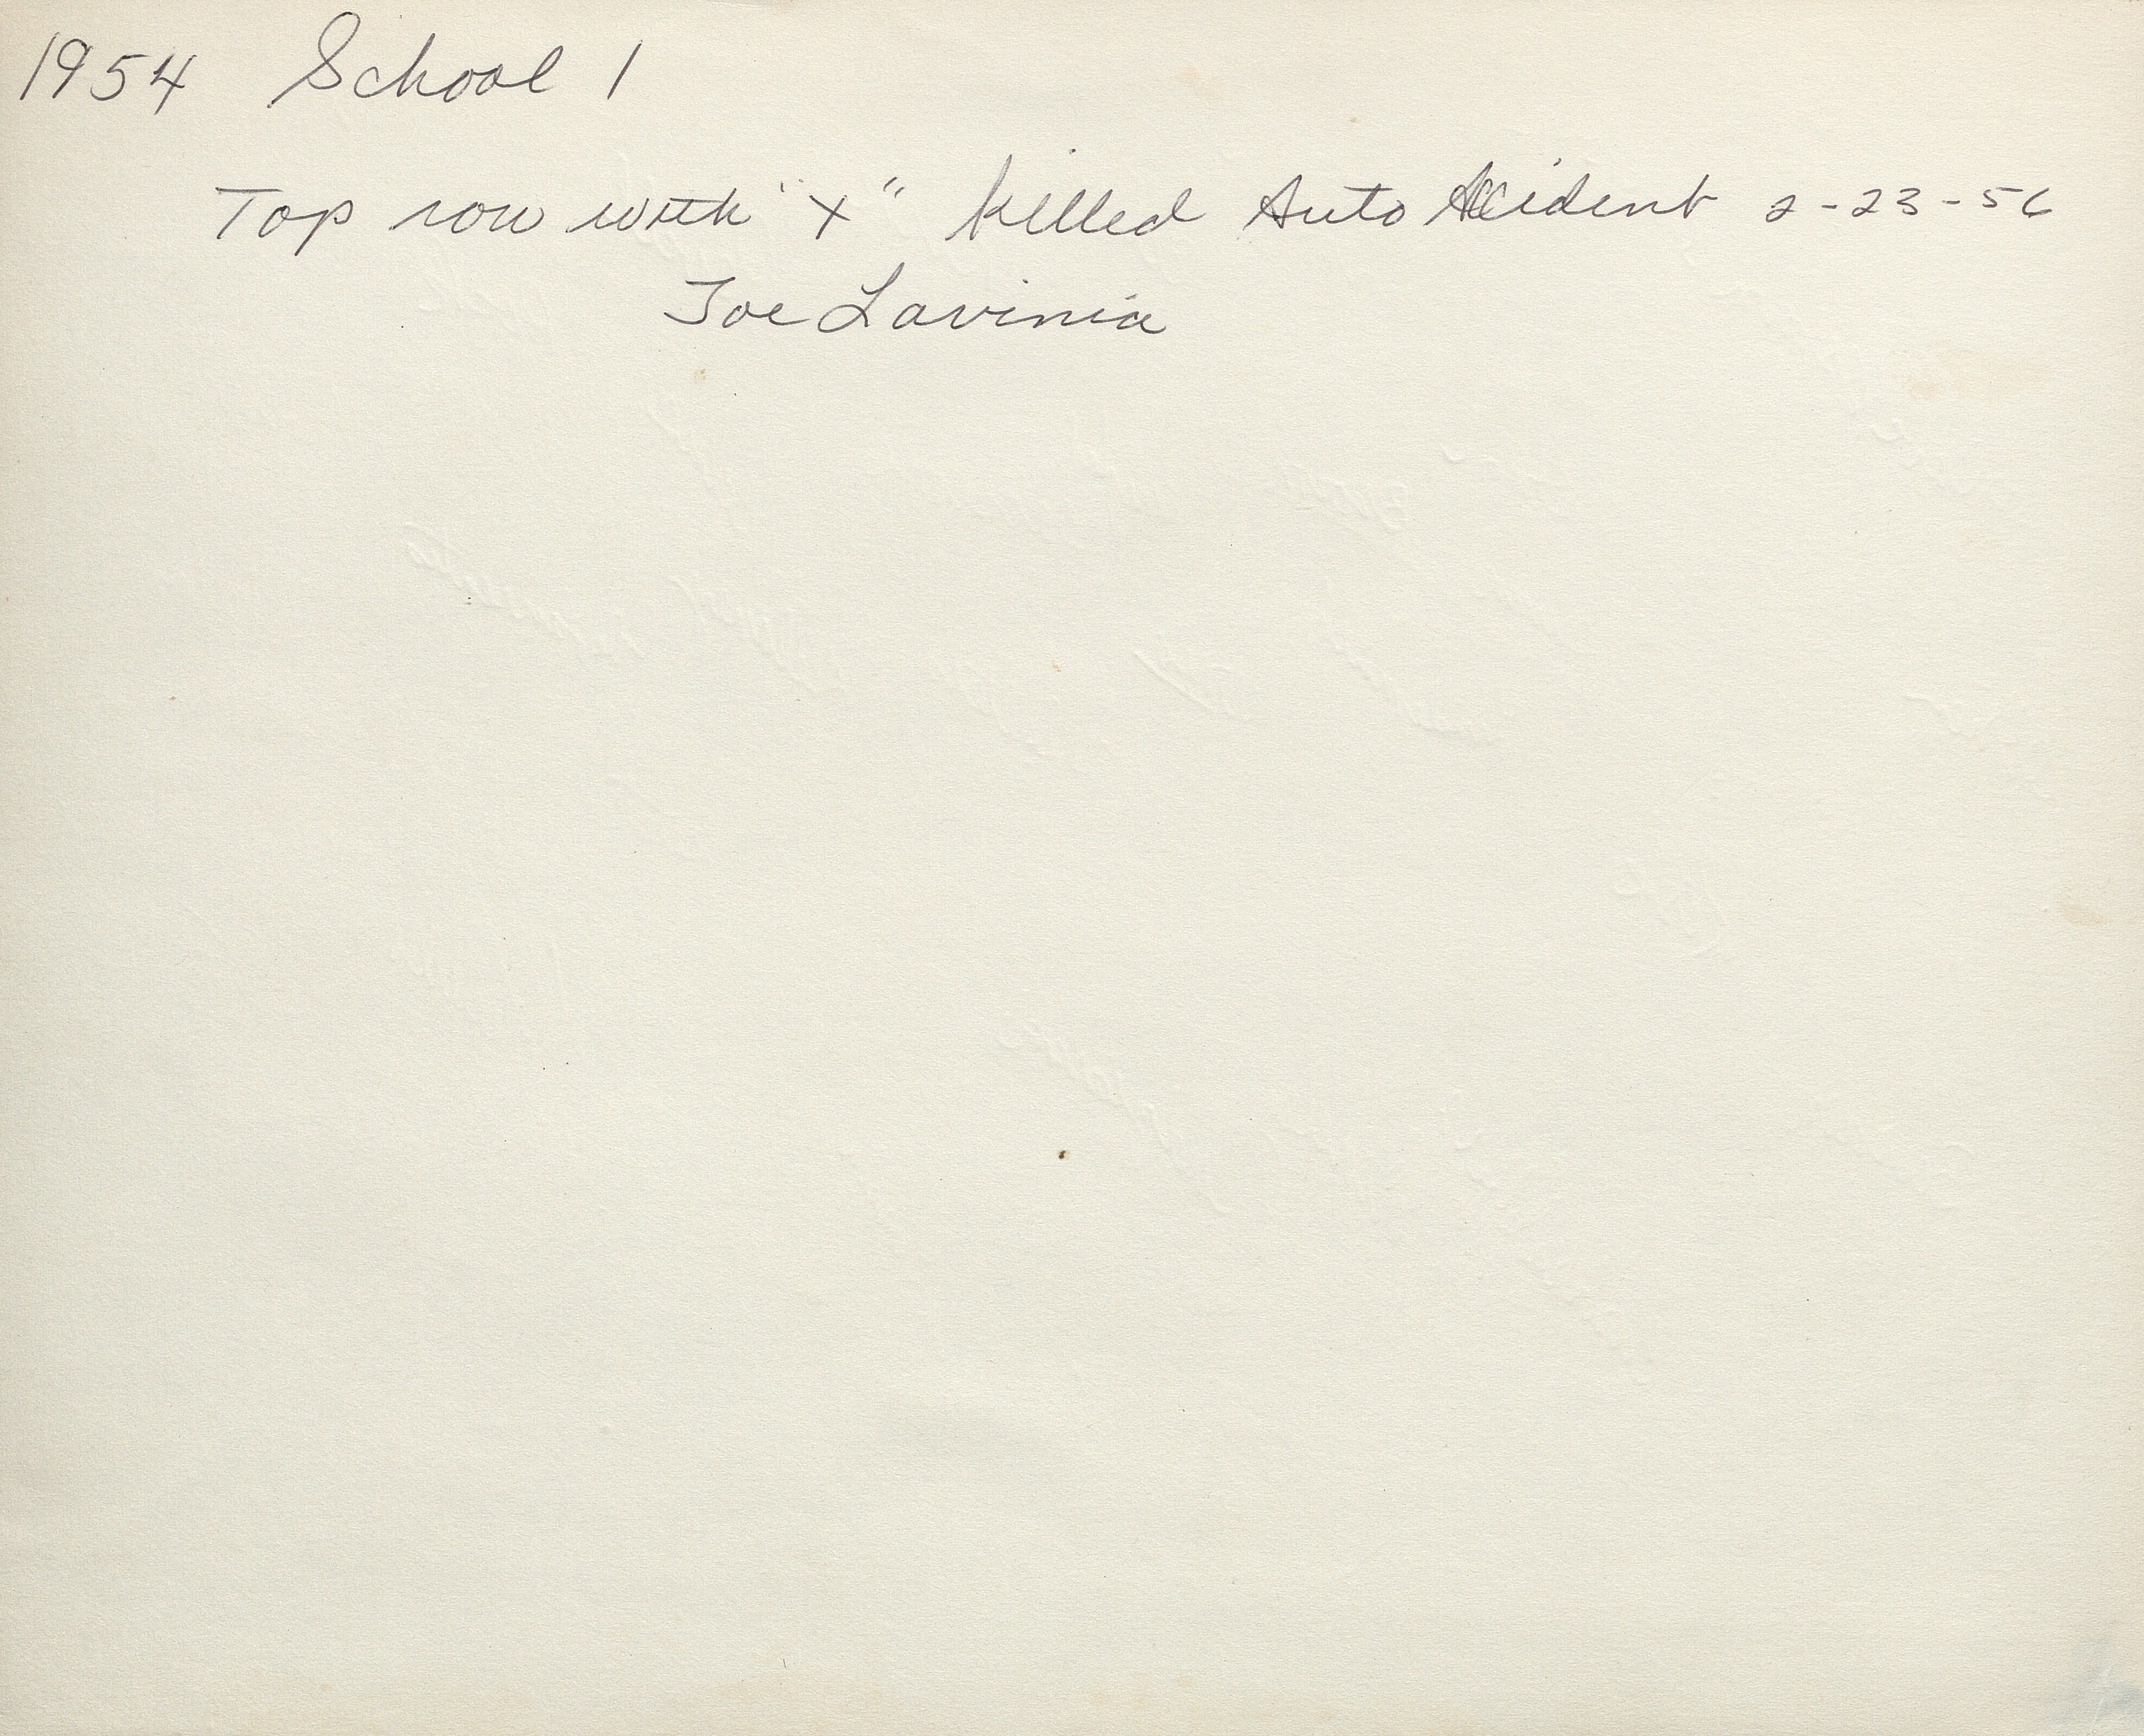 1954 School 1
Top row with "x" killed Auto Accident 2-23-56
Joe Lavinia